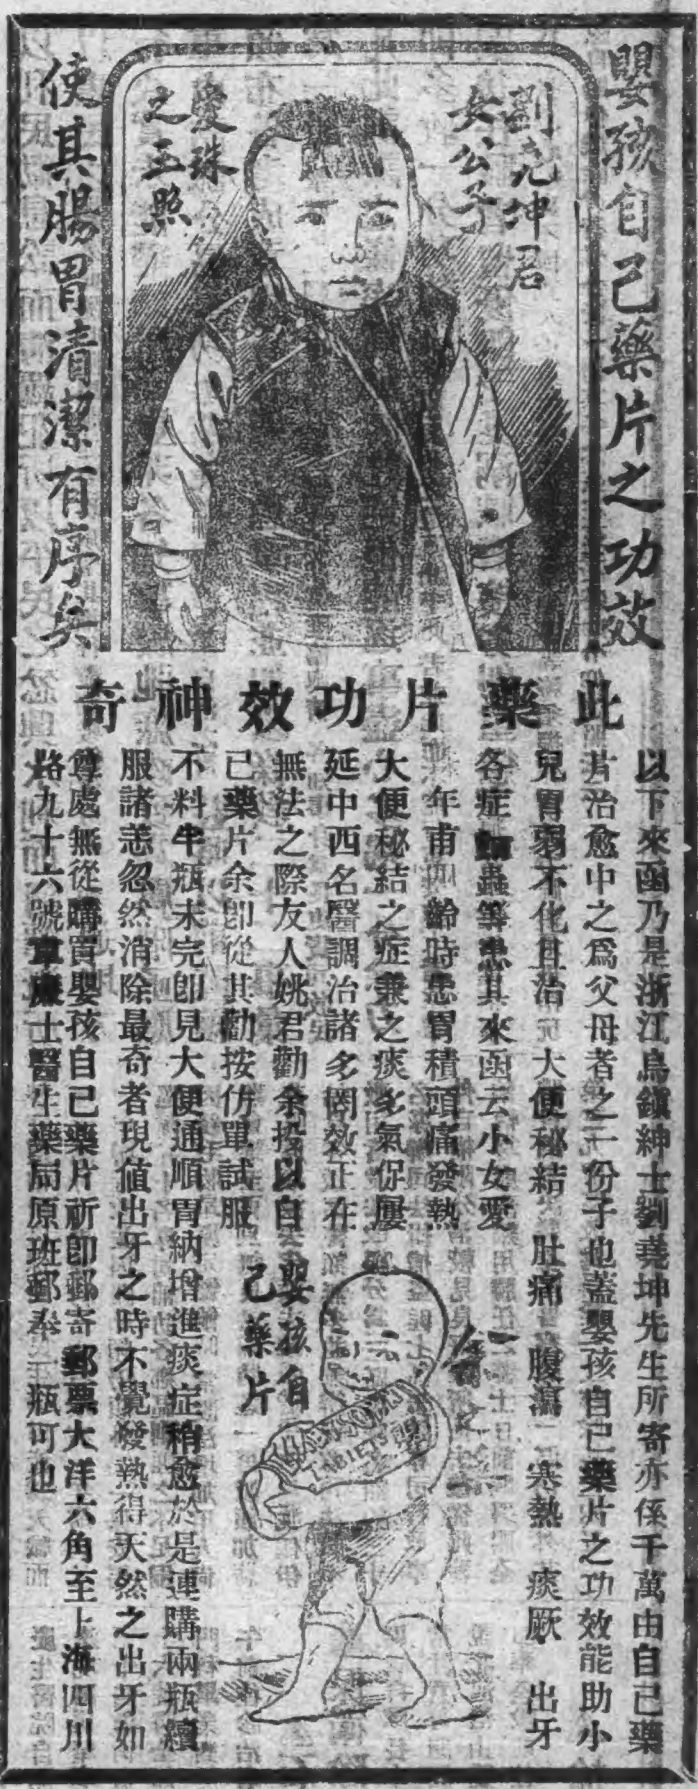 嬰孩自己藥片之功效
劉堯坤君
女公子
愛珠
之玉照
使其腸胃清潔有序矣
此藥片功效神奇
以下來函乃是浙江烏鎮紳士劉堯坤先生所寄亦係千萬由自己藥
片治愈中之為父母者之一份子也蓋嬰孩自己藥片之功效能助小
兒胃弱不化且治 大便秘結 肚痛 腹瀉 寒熱 痰厥 出牙
各症 蟲等患其來函云小女愛
年甫四齡時患胃積頭痛發熱
大便秘結之症兼之痰多氣促屢
延中西名醫調治諸多罔效正在
無法之際友人姚君勸余投以自
己藥片余卽從其勸按仿單試服
不料半瓶未完卽見大便通順胃納增進痰症稍愈於是連購兩瓶續
服諸恙忽然消除最奇者現值出牙之時不覺發熱得天然之出牙如
尊處無從購買嬰孩自己藥片祈卽郵寄郵票大洋六角至上海四川
路九十六號韋廉士醫生藥局原班郵奉一瓶可也
嬰孩自
己藥片
TABLETS